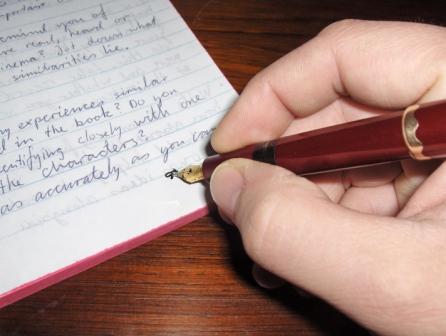 important
remind you of
read, heard or
cinema? Jot down what
similarities lie.
experiences similar
in the book? Do you
identifying closely with one
the characters?
as accurately as you